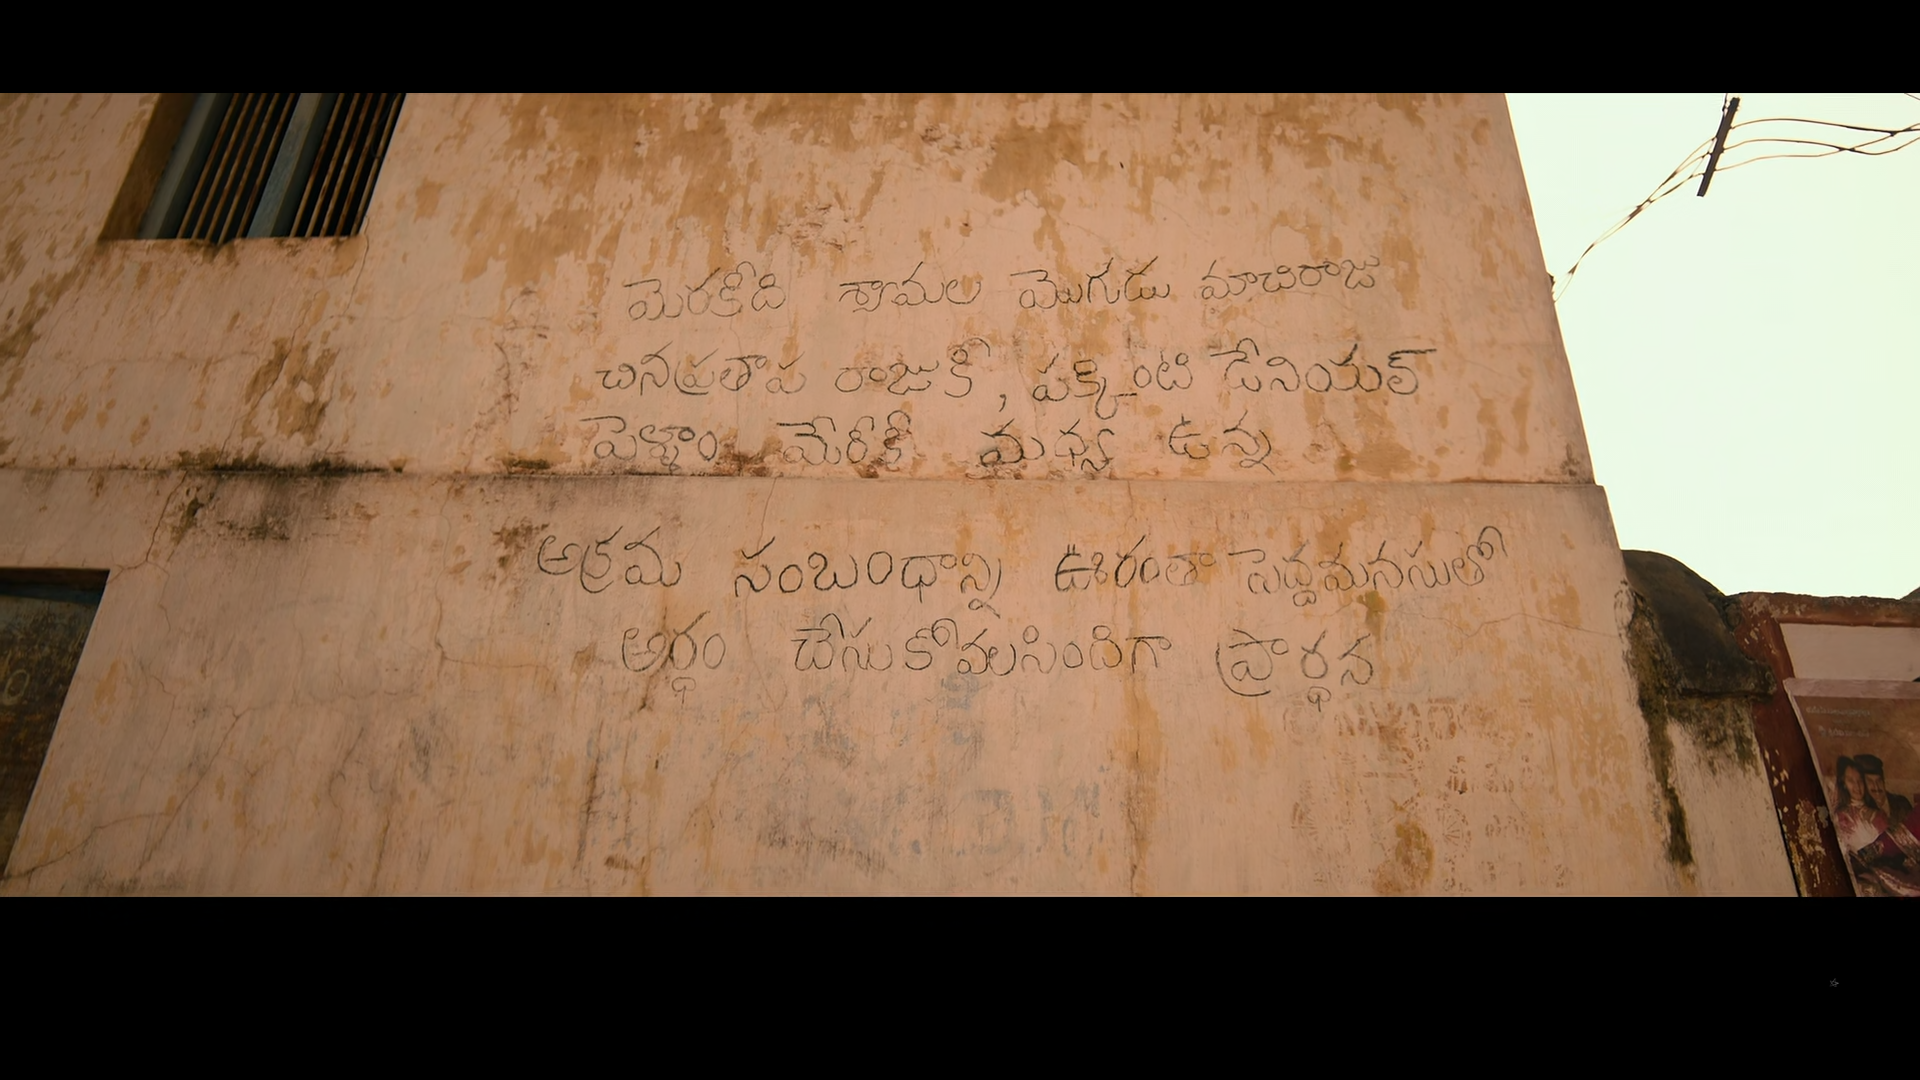 మెరకీది శ్యామల మొగుడు మాచిరాజు
చినప్రతాప రాజుకీ, పక్కింటి డేనియల్
పెళ్ళాం మేరీకీ మధ్య ఉన్న
అక్రమ సంబంధాన్ని ఊరంతా పెద్దమనసుతో
అర్ధం చేసుకోవలసిందిగా ప్రార్ధన